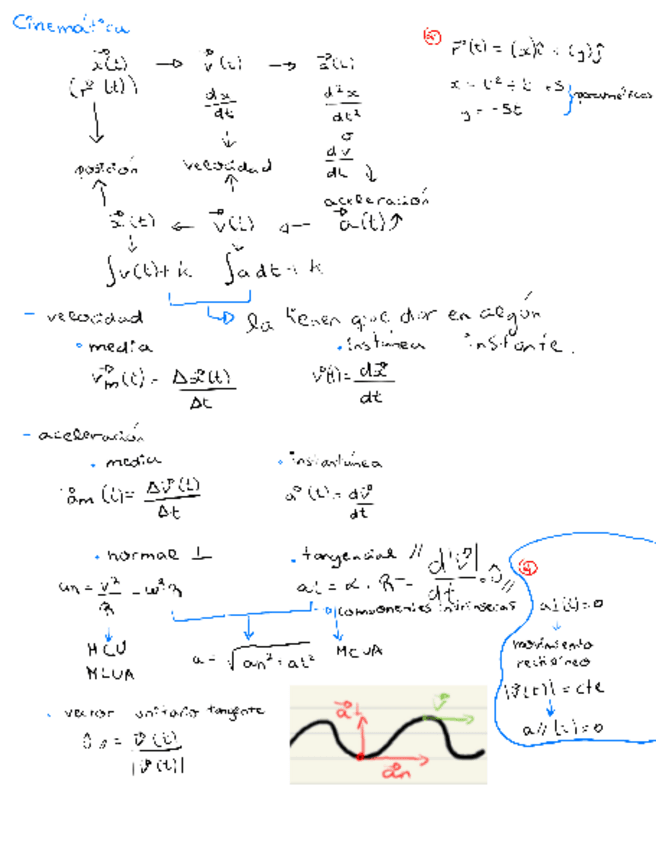 Cinemática
x⃗(t) → v⃗(t) → a⃗(t)
(r⃗(t))
dx/dt
d²x/dt²
o
dv/dt
posición
velocidad
aceleración
x⃗(t) ← v⃗(t) ← a⃗(t)
∫v(t)+k ∫a dt + k
la tienen que dar en algún
instante.
- velocidad
• media
• instánea
v⃗m(t) = Δx⃗(t)/Δt
v⃗(t) = dx⃗/dt
- aceleración
• media
• instantánea
a⃗m(t) = Δv⃗(t)/Δt
a⃗(t) = dv⃗/dt
• normal ⊥
• tangencial //
an = v²/R = ω²R
at = α · R = d|v⃗|/dt · û//
componentes intrínsecas
MCU
a = √an² + at²
MCUA
• vector unitario tangente
û// = v⃗(t)/|v⃗(t)|
a⃗t
v⃗
a⃗n
r⃗(t) = (x)î + (y)ĵ
x = t² + t + 5
y = -5t
paramétricas
a⊥(t) = 0
movimiento
rectilíneo
|v⃗(t)| = cte
a//(t) = 0